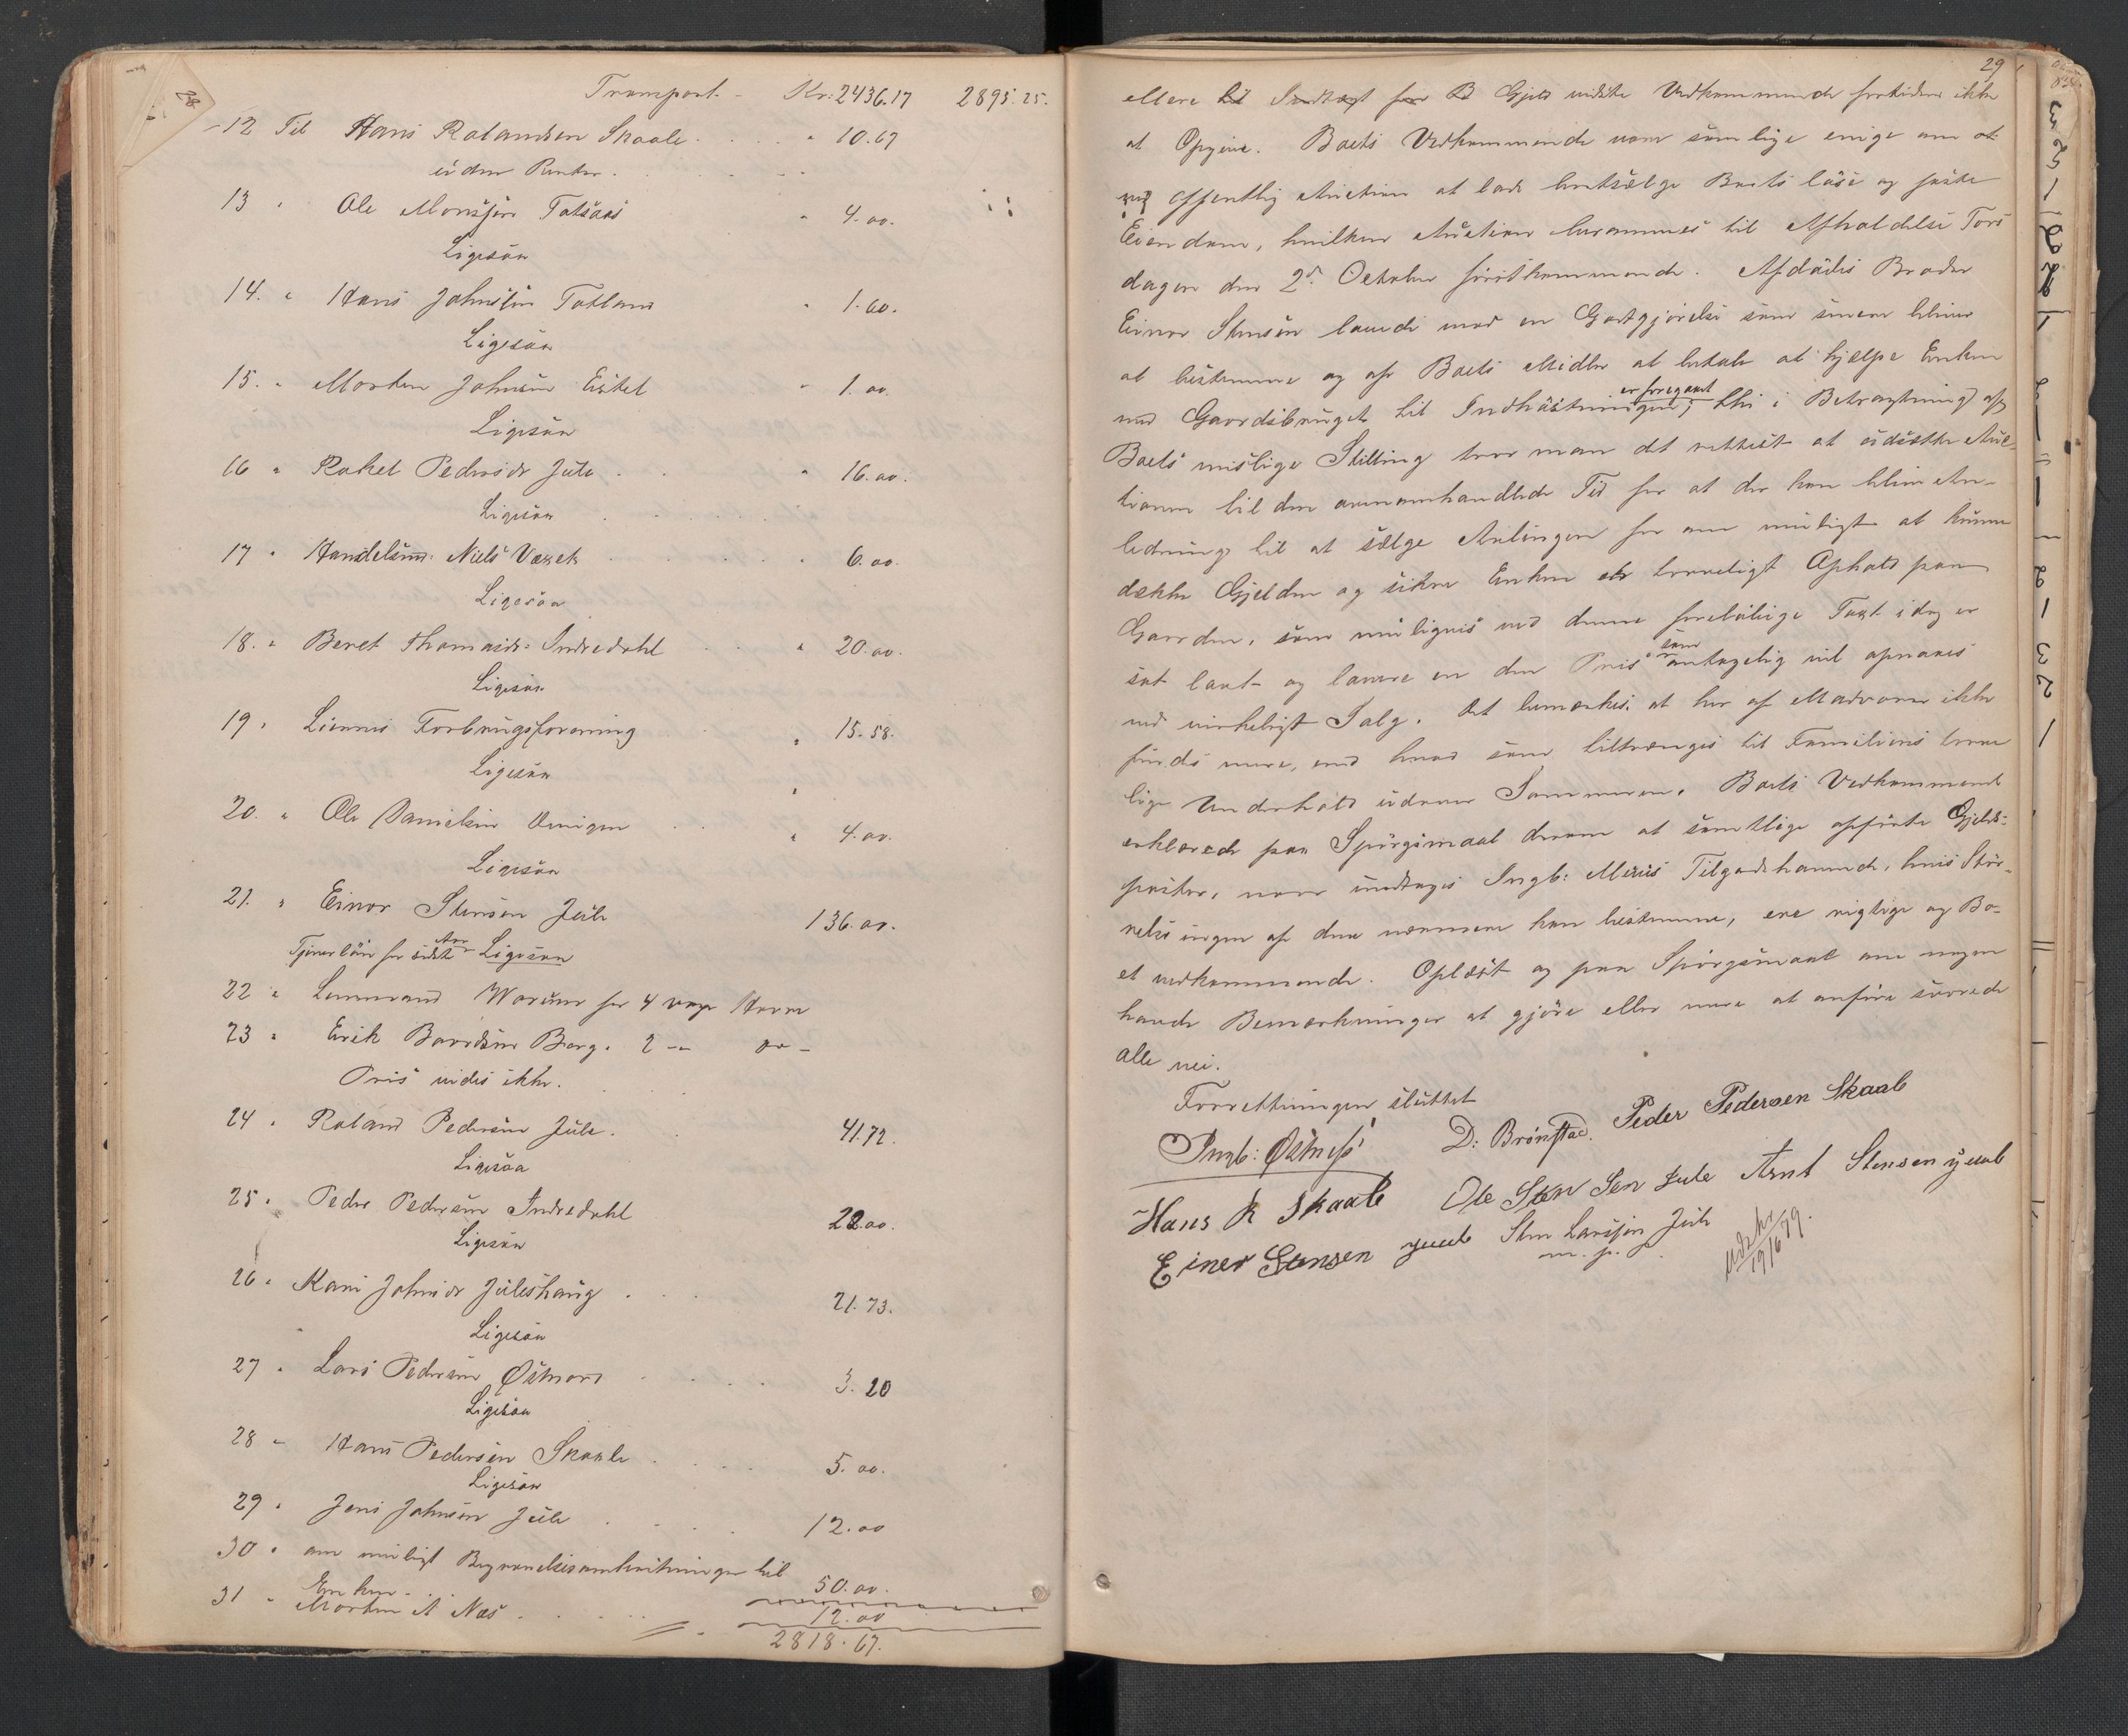 28
Transport - Kr: 2436.17 2895.25.
12 Til Hans Rolandsen Skaale . . . " 10.67
uden Renter.
13 " Ole Monsen Totsaas " 4.00.
Ligesaa
14. " Hans Johnsen Totland " 1.60.
Ligesaa
15. " Morten Johnsen Estel " 1.00.
Ligesaa
16 " Rakel Pedersdr Jule . . " 16.00.
Ligesaa
17 " Handelsmd: Niels " 6.00.
Ligesaa
18. " Beret Thomasdr: Indredahl " 20.00.
Ligesaa
19. Liernes Forbrugsforening " 15.58.
Ligesaa
20. " Ole Danielsen " 4.00.
Ligesaa
21. " Einar Stensen Jule 136.00.
Tjenerløn for sidste Aar Ligesaa
22 " Lensmand for 4 Horn
23 " Erik Baardsen Berg. 2 -" -
Pris vides ikke.
24 " Roland Pedersen Jule. 41.72.
Ligesaa
25. Peder Pedersen Indredahl 22.00.
Ligesaa
26. Kari Johnsdr Juleshaug . 21.73.
Ligesaa
27 " Lars Pedersen Østnord 3.20
Ligesaa
28 " Hans Pedersen Skaale . 5.00.
Ligesaa
29. Jens Johnsen Jule . 12.00
30 " om muligt Begravelsesomkostninger til
Enken . . 50.00.
31 " Morten A Næs . . . 12.00
2818.67.
29
ellere til Indtægt for B Gjeld vidste Vedkommende fortiden ikke
at Opgive. Boets Vedkommende vare samtlige enige om at
ved offentlig Auction at lade bortsælge Boets løse og faste
Eiendom, hvilken Auction berammes til Afholdelse Tors
dagen den 2d October førstkommende. Afdødes Broder
Einar Stensen lovede mod en Godtgjørelse som senere bliver
at bestemme og af Boets Midler at betale at hjælpe Enken
med Gaardsbruget til Indhøstningen er foregaaet; thi i Betragtning af
Boets mislige Stilling tror man det rettest at udsætte Auc-
tionen til den ovenomhandlede Tid for at der kan blive An-
ledning til at sælge Avlingen for om muligt at kunne
dække Gjelden og sikre Enken et taaleligt Ophold paa
Gaarden, som muligens ved denne foreløbige Taxt idag er
sat lavt og lavere en den Pris som antagelig vil opnaaes
ved virkeligt Salg. Det bemærkes at her af Madvarer ikke
findes mere, end hvad som tiltrænges til Familiens tarve
lige Underhold udover Sommeren. Boets Vedkommende
erklærede paa Spørgsmaal derom at samtlige opførte Gjelds-
poster, naar undtages Ingb: Tilgodehavende, hvis Stør-
relse ingen af dem nærmere kan bestemme, ere rigtige og Bo-
et vedkommende. Oplæst og paa Spørgsmaal om nogen
havde Bemærkninger at gjøre eller mere at anføre svarede
alle nei.
Forretningen sluttet
Ingb: Østnes D: Brønstad. Peder Pedersen Skaale
Hans R Skaale Ole Sten Sen Jule Arnt Stensen juul
Einer Stensen juul Sten Larssen Jule
m. p. P.
19/6 79.